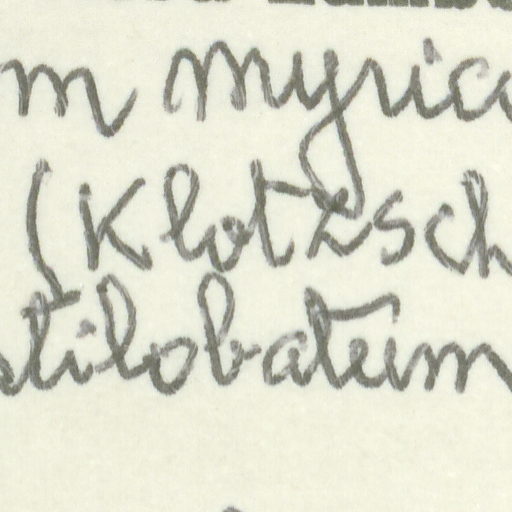 m myric
(Klotzsch
stilobatum